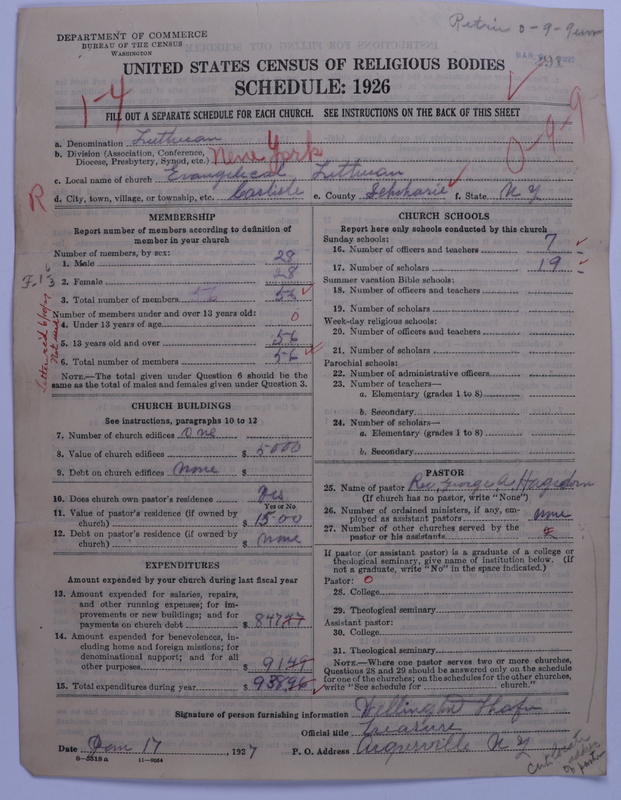 DEPARTMENT OF COMMERCE
BUREAU OF THE CENSUS
WASHINGTON
0-9-9
298
UNITED STATES CENSUS OF RELIGIOUS BODIES
SCHEDULE: 1926
1-4
FILL OUT A SEPARATE SCHEDULE FOR EACH CHURCH. SEE INSTRUCTIONS ON THE BACK OF THIS SHEET
0-9-9
a. Denomination Lutheran
b. Division (Association, Conference, Diocese, Presbytery, Synod, etc.) New York
c. Local name of church Evangelical Lutheran
d. City, town, village, or township, etc. Carlisle e. County Schoharie f. State N Y
R
MEMBERSHIP
Report number of members according to definition of member in your church
Number of members, by sex:
1. Male 28
2. Female 28
3. Total number of members 56
Number of members under and over 13 years old:
4. Under 13 years of age 0
5. 13 years old and over 56
6. Total number of members 56
NOTE.—The total given under Question 6 should be the
same as the total of males and females given under Question 3.
CHURCH BUILDINGS
See instructions, paragraphs 10 to 12
7. Number of church edifices One
8. Value of church edifices $ 5000
9. Debt on church edifices None $
10. Does church own pastor's residence Yes
Yes or No
11. Value of pastor's residence (if owned by
church) $ 1500
12. Debt on pastor's residence (if owned by
church) $ None
EXPENDITURES
Amount expended by your church during last fiscal year
13. Amount expended for salaries, repairs,
and other running expenses; for im-
provements or new buildings; and for
payments on church debt $ 847
14. Amount expended for benevolences, in-
cluding home and foreign missions; for
denominational support; and for all
other purposes $ 91
15. Total expenditures during year $ 938
CHURCH SCHOOLS
Report here only schools conducted by this church
Sunday schools:
16. Number of officers and teachers 7
17. Number of scholars 19
Summer vacation Bible schools:
18. Number of officers and teachers
19. Number of scholars
Week-day religious schools:
20. Number of officers and teachers
21. Number of scholars
Parochial schools:
22. Number of administrative officers
23. Number of teachers—
a. Elementary (grades 1 to 8)
b. Secondary
24. Number of scholars—
a. Elementary (grades 1 to 8)
b. Secondary
PASTOR
25. Name of pastor Rev. George A Hagedorn
(If church has no pastor, write "None")
26. Number of ordained ministers, if any, em-
ployed as assistant pastors none
27. Number of other churches served by the
pastor or his assistants
If pastor (or assistant pastor) is a graduate of a college or
theological seminary, give name of institution below. (If
not a graduate, write "No" in the space indicated.)
Pastor: 0
28. College
29. Theological seminary
Assistant pastor:
30. College
31. Theological seminary
NOTE.—Where one pastor serves two or more churches,
Questions 28 and 29 should be answered only on the schedule
for one of the churches; on the schedules for the other churches,
write "See schedule for church."
Signature of person furnishing information Wellington
Official title Treasurer
Date Jan 17, 1927 P. O. Address Argusville N Y
8-5518a 11-9054